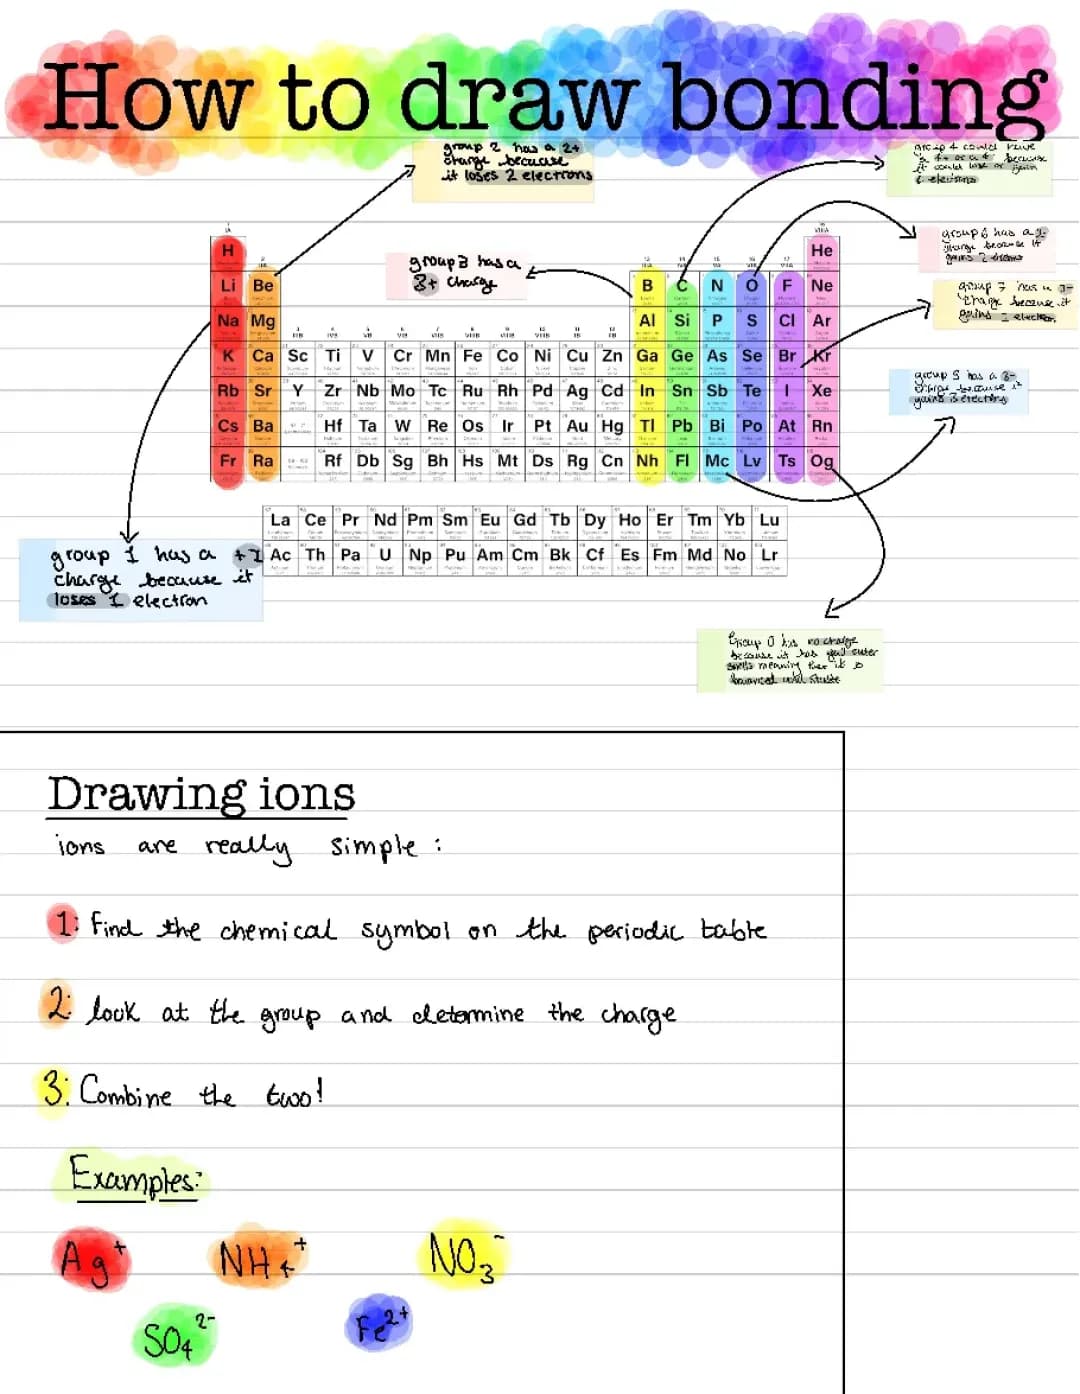 How to draw bonding
group 2 has a 2+
charge because
it loses 2 electrons
group 4 could have
a 4+ or a 4- because
it could lose or gain
electrons
group 6 has a 2-
charge because it
gains 2
group 3 has a
3+ charge
group 7 has a
charge because it
gains 1 electron
group 5 has a 3-
charge because it
gains 3 electrons
H He
Li Be B C N O F Ne
Na Mg Al Si P S Cl Ar
K Ca Sc Ti V Cr Mn Fe Co Ni Cu Zn Ga Ge As Se Br Kr
Rb Sr Y Zr Nb Mo Tc Ru Rh Pd Ag Cd In Sn Sb Te I Xe
Cs Ba Hf Ta W Re Os Ir Pt Au Hg Tl Pb Bi Po At Rn
Fr Ra Rf Db Sg Bh Hs Mt Ds Rg Cn Nh Fl Mc Lv Ts Og
La Ce Pr Nd Pm Sm Eu Gd Tb Dy Ho Er Tm Yb Lu
Ac Th Pa U Np Pu Am Cm Bk Cf Es Fm Md No Lr
group 1 has a +1
charge because it
loses 1 electron
Group 0 has no charge
because it has full outer
shells meaning that it is
balanced and stable
Drawing ions
ions are really simple :
1: Find the chemical symbol on the periodic table
2: look at the group and determine the charge
3: Combine the two!
Examples:
Ag⁺ NH₄⁺ NO₃⁻
SO₄²⁻ Fe²⁺